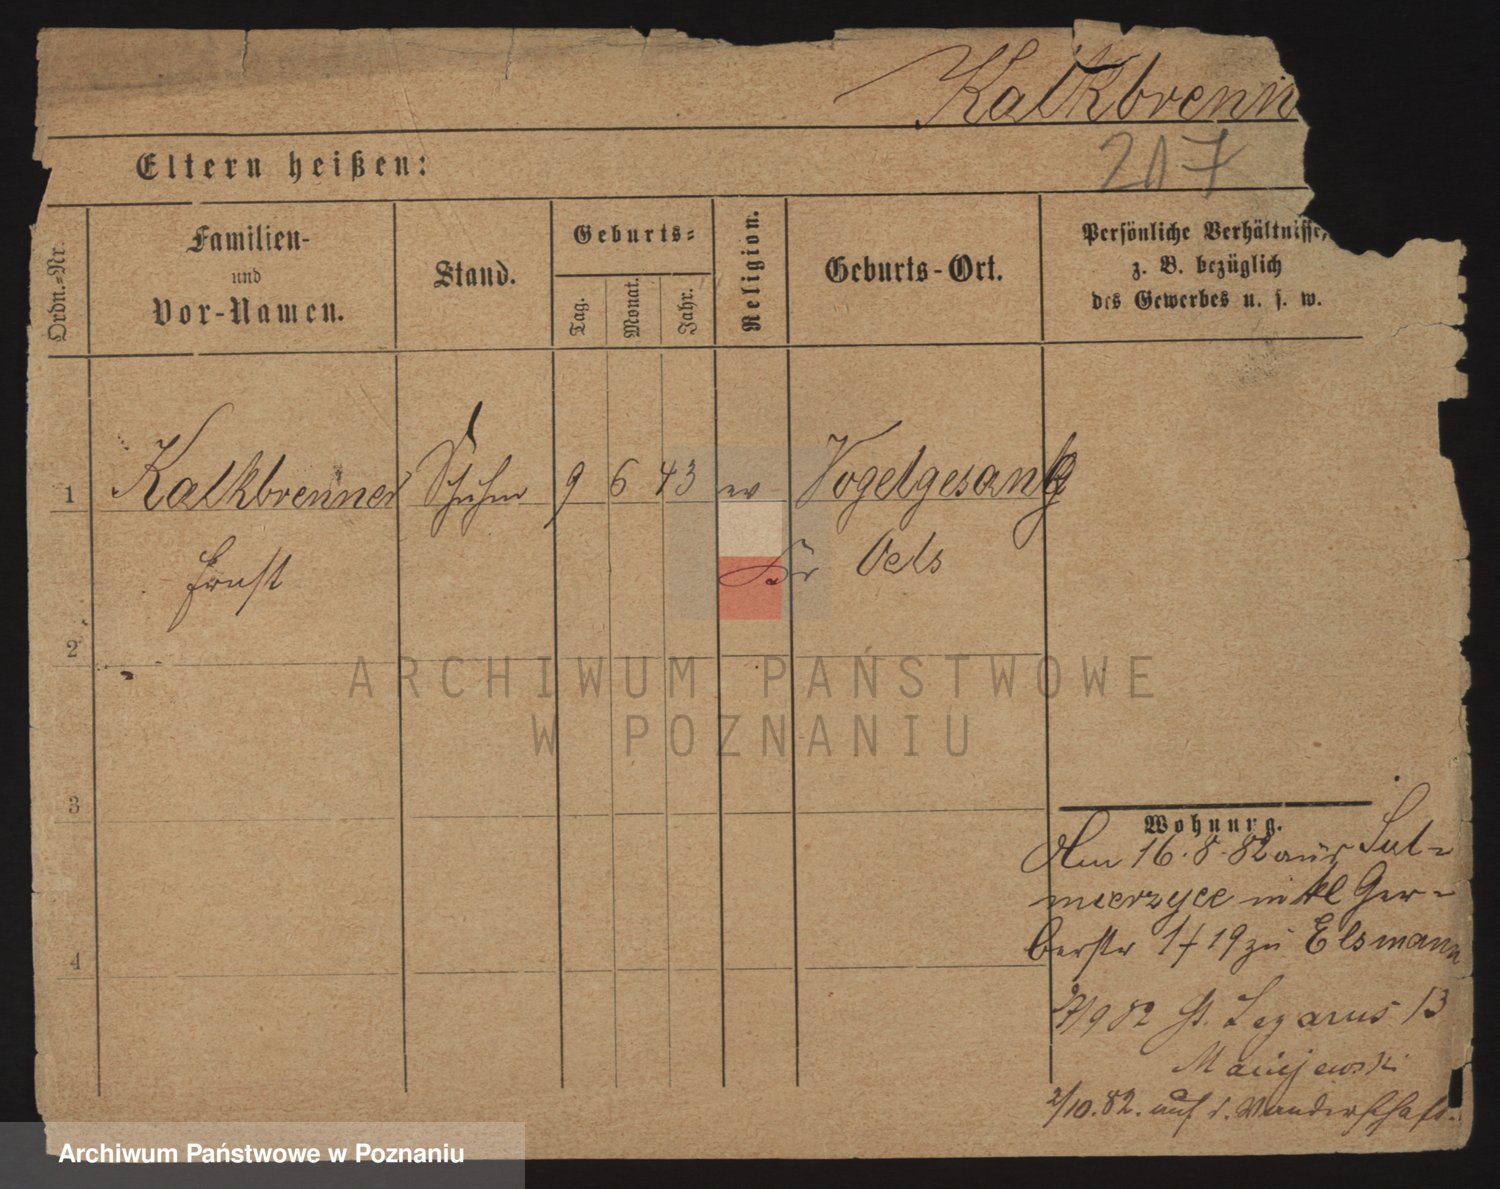 Kalkbrenn
217
Eltern heißen:
Ordn.-Nr.
Familien-
und
Vor-Namen.
Stand.
Geburts-
Tag.
Monat.
Jahr.
Religion.
Geburts-Ort.
Persönliche Verhältnisse,
z. B. bezüglich
des Gewerbes u. s. w.
1 Kalkbrenner Schuhm 9 6 43 ev Vogelgesang
Ernst Kr Oels
2
ARCHIWUM PAŃSTWOWE
W POZNANIU
3
Wohnung.
Am 16.8.82 aus Sul-
mierzyce in kl Ger-
berstr 19 zu Elsmann
4
/9 82 St. Lazarus 13
Maciejewski
2/10.82. auf d. Wanderschaft.
Archiwum Państwowe w Poznaniu